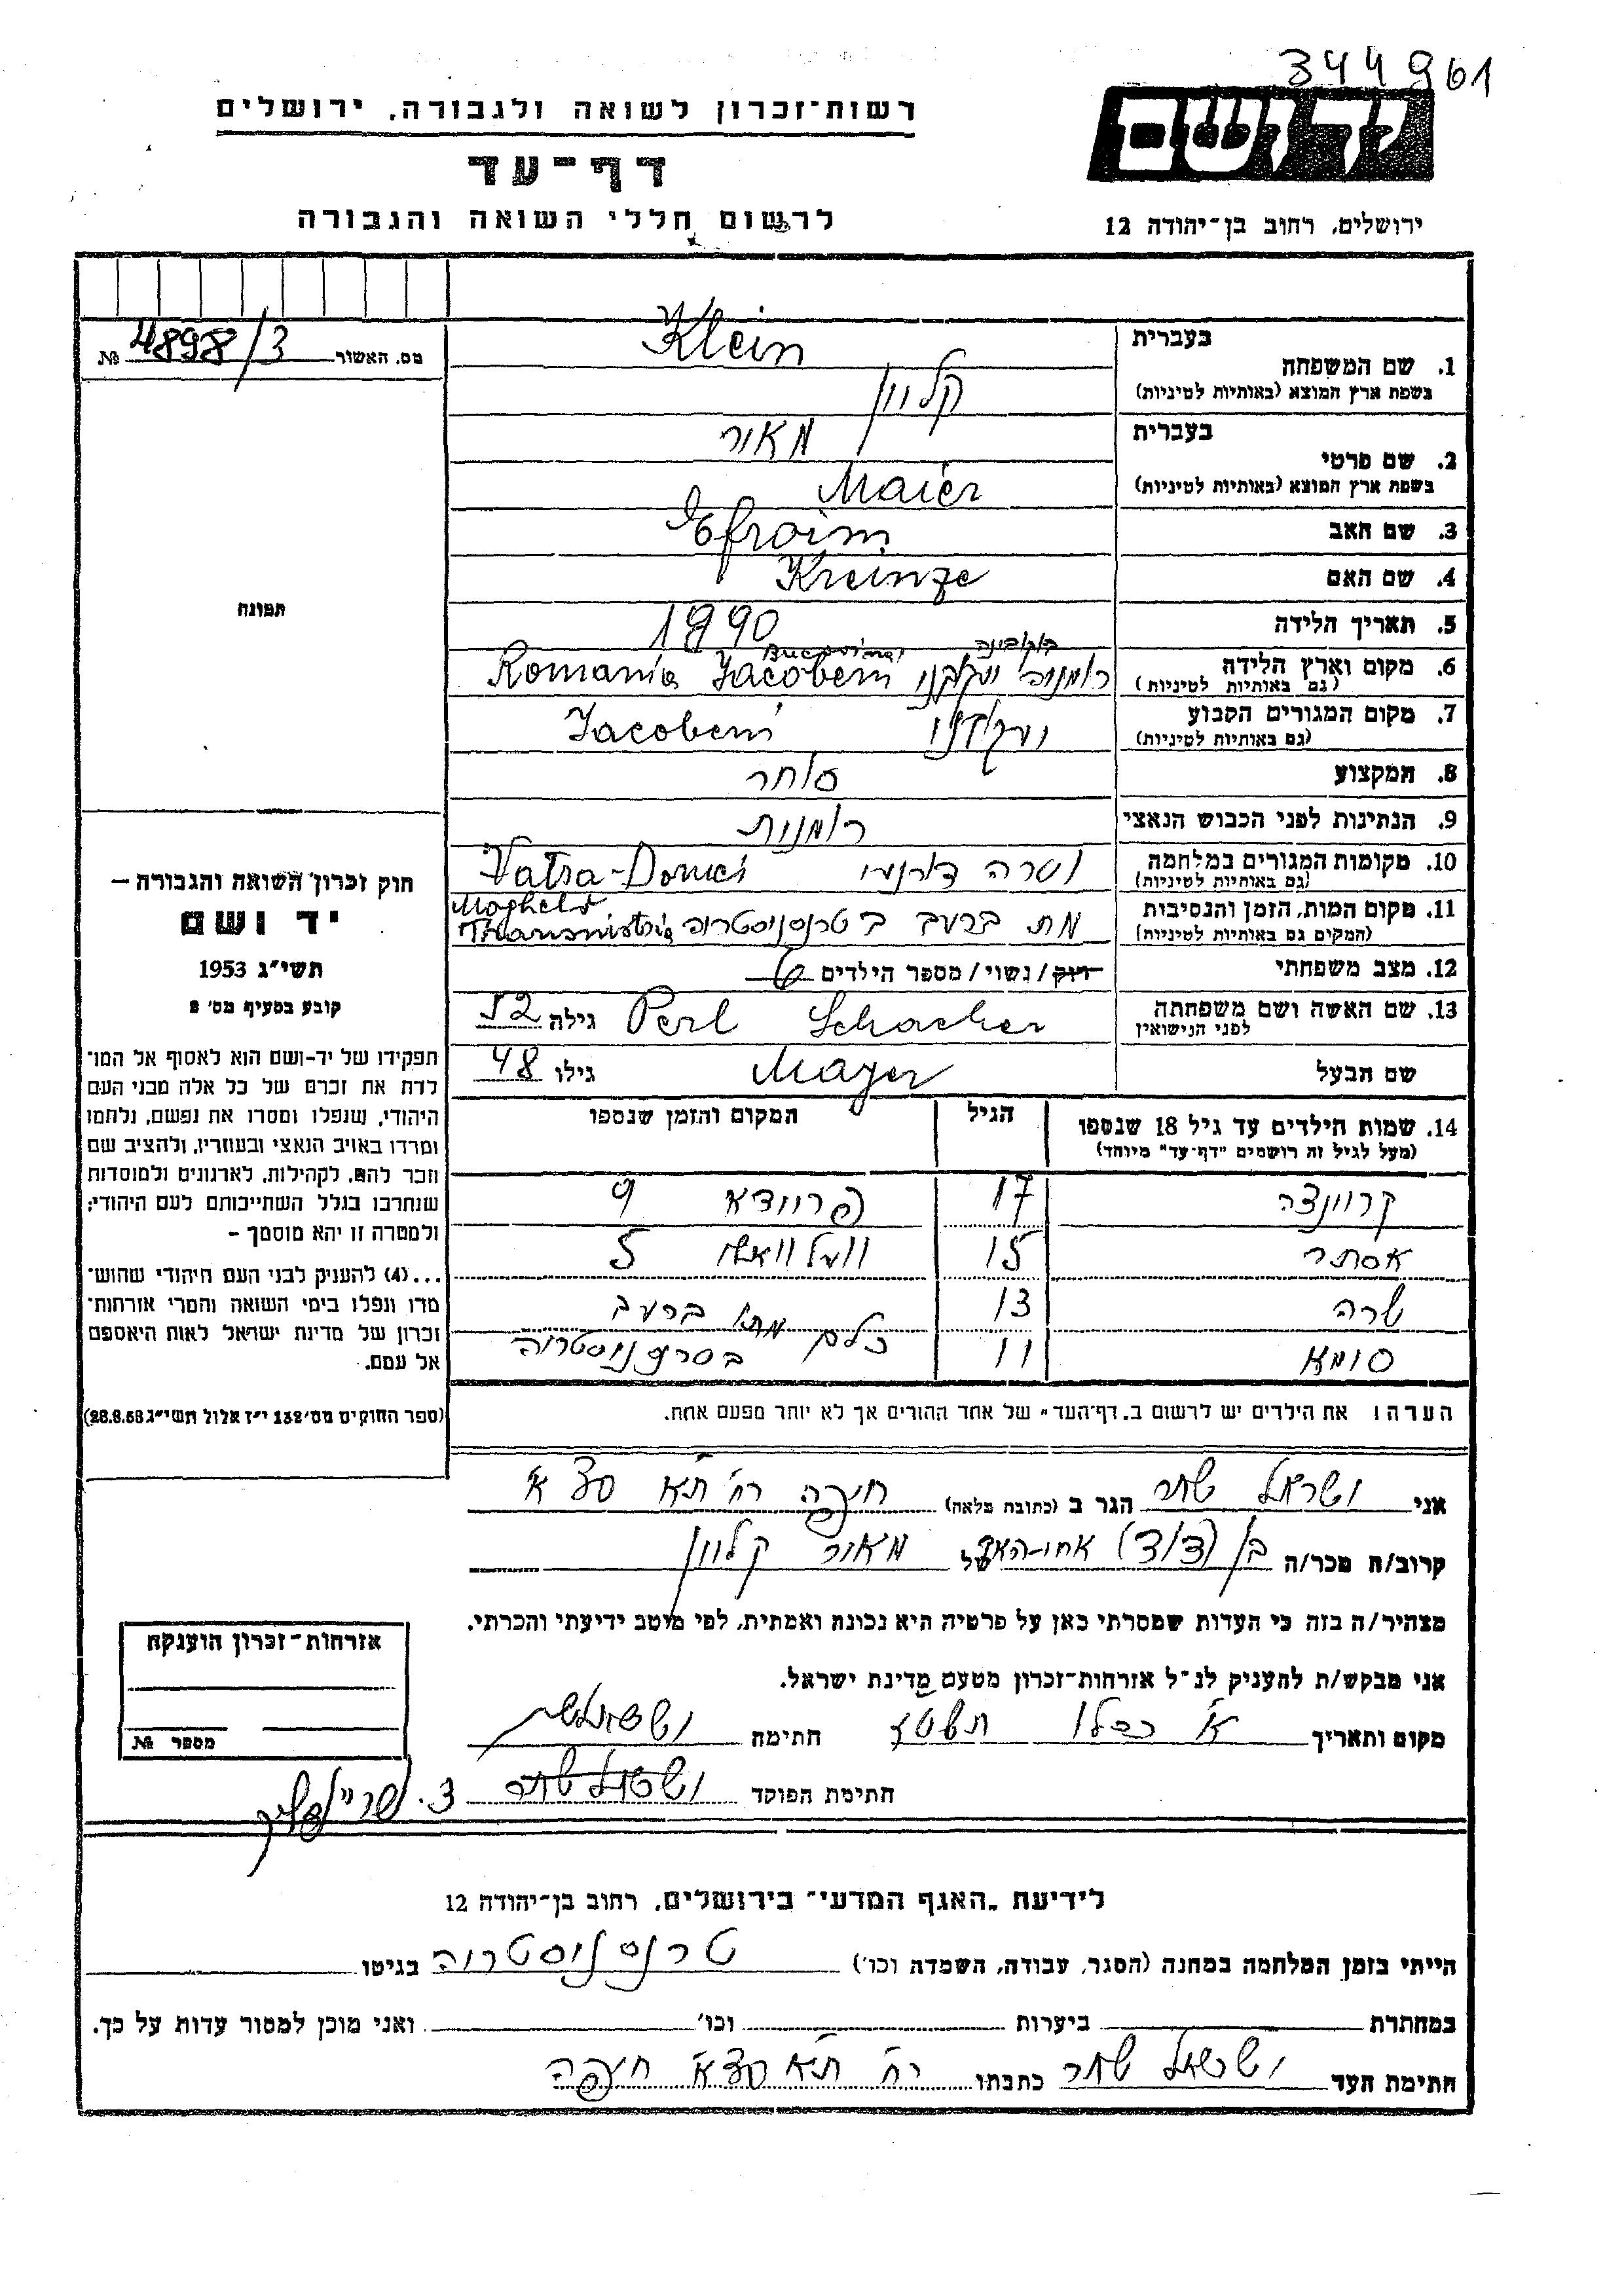 344961
יד ושם
רשות-זכרון לשואה ולגבורה, ירושלים
דף-עד
לרשום חללי השואה והגבורה
ירושלים, רחוב בן-יהודה 12
מס. האשור 4898/3 №
תמונה
חוק זכרון השואה והגבורה —
יד ושם
תשי"ג 1953
קובע בסעיף מס' 2
תפקידו של יד-ושם הוא לאסוף אל המו-
לדת את זכרם של כל אלה מבני העם
היהודי, שנפלו ומסרו את נפשם, נלחמו
ומרדו באויב הנאצי ובעוזריו, ולהציב שם
וזכר להם, לקהילות, לארגונים ולמוסדות
שנחרבו בגלל השתייכותם לעם היהודי;
ולמטרה זו יהא מוסמך –
...(4) להעניק לבני העם היהודי שהוש-
מדו ונפלו בימי השואה והמרי אזרחות-
זכרון של מדינת ישראל לאות היאספם
אל עמם.
(ספר החוקים מס' 132 י"ז אלול תשי"ג 28.8.53)
בעברית Klein
1. שם המשפחה
בשפת ארץ המוצא (באותיות לטיניות) קליין
בעברית מאיר
2. שם פרטי
בשפת ארץ המוצא (באותיות לטיניות) Maier
3. שם האב Efroim
4. שם האם Kreinze
5. תאריך הלידה 1890
בוקובינה Bucovina
6. מקום וארץ הלידה רומניה יעקבני Iacobeni Romania
(גם באותיות לטיניות)
7. מקום המגורים הקבוע יעקבני Iacobeni
(גם באותיות לטיניות)
8. המקצוע סוחר
9. הנתינות לפני הכבוש הנאצי רומנית
10. מקומות המגורים במלחמה וטרה דורניי Vatra-Dornei
(גם באותיות לטיניות)
11. מקום המות, הזמן והנסיבות מת ברעב בטרנסניסטריה
(המקום גם באותיות לטיניות)
12. מצב משפחתי רווק/נשוי/מספר הילדים 6
13. שם האשה ושם משפחתה Perl Schacher גילה 52
לפני הנישואין
שם הבעל Mayer גילו 48
14. שמות הילדים עד גיל 18 שנספו הגיל המקום והזמן שנספו
(מעל לגיל זה רושמים "דף-עד" מיוחד)
קריינצה 17 פריידא 9
אסתר 15 5
שרה 13 כולם מתו ברעב
סימא 11 בטרנסניסטריה
הערה: את הילדים יש לרשום ב„דף-העד" של אחד ההורים אך לא יותר מפעם אחת.
אני ישראל שחר הגר ב (כתובת מלאה) חיפה רח' א'
קרוב/ה מכר/ה בן (דוד) אחי-האם של מאיר קליין
מצהיר/ה בזה כי העדות שמסרתי כאן על פרטיה היא נכונה ואמתית, לפי מיטב ידיעתי והכרתי.
אני מבקש/ת להעניק לנ"ל אזרחות-זכרון מטעם מדינת ישראל.
מקום ותאריך א' כסלו חתימה
חתימת הפוקד ישראל שחר
אזרחות-זכרון הוענקה
מספר №
לידיעת „האגף המדעי" בירושלים, רחוב בן-יהודה 12
הייתי בזמן המלחמה במחנה (הסגר, עבודה, השמדה וכו') טרנסניסטריה בגיטו
במחתרת ביערות וכו' ואני מוכן למסור עדות על כך.
חתימת העד ישראל שחר כתבתו רח' א' חיפה